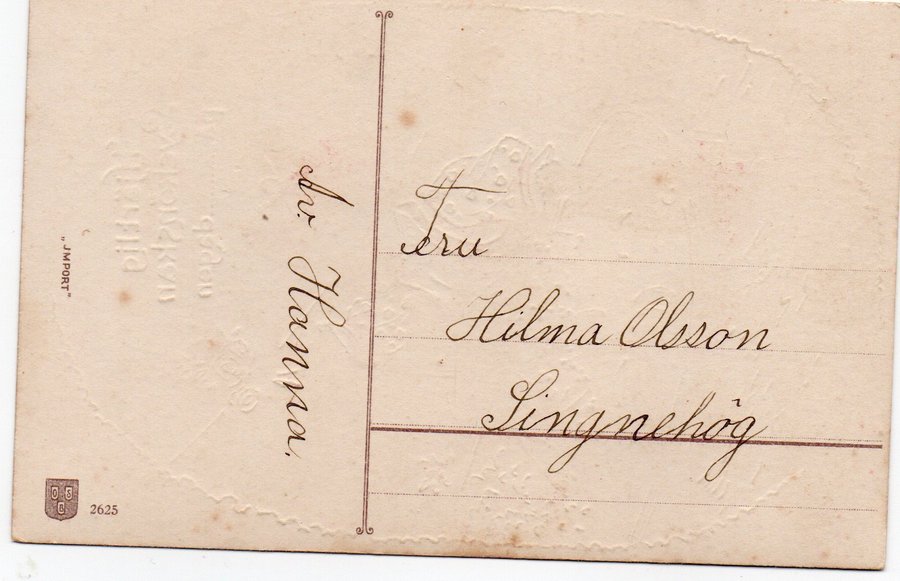 Av. Hanna.
Fru
Hilma Olsson
Singnehög
„JMPORT"
2625